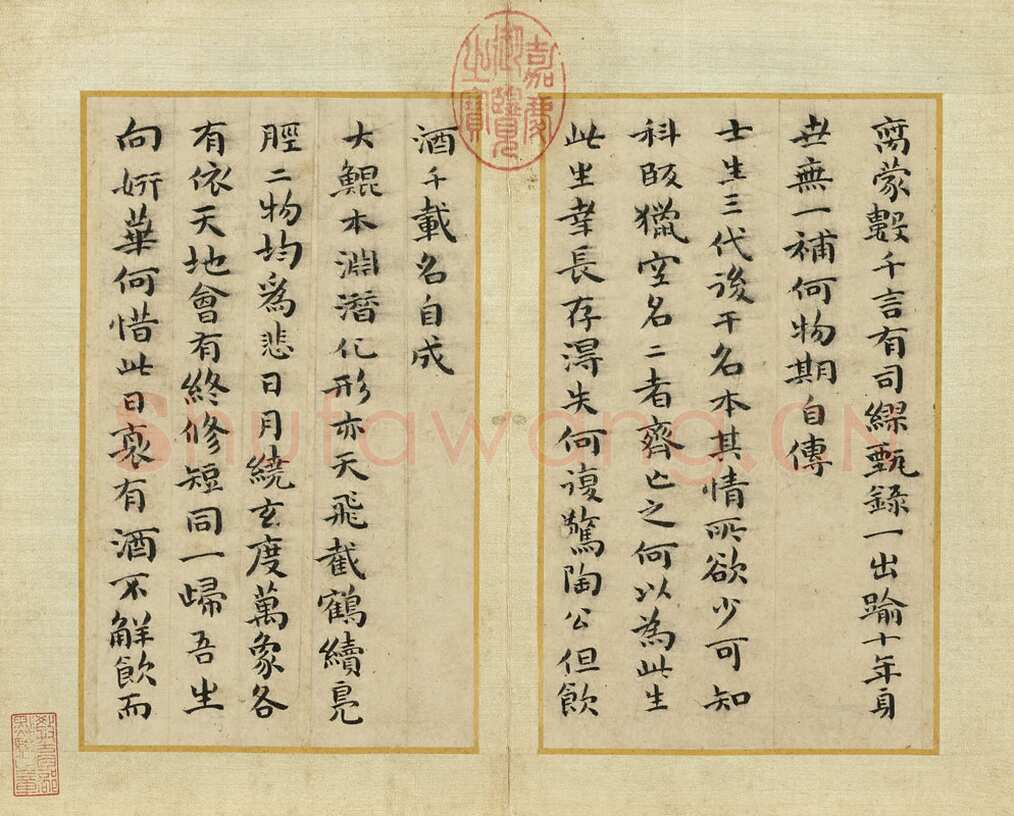 嘉慶御覽之寶
蒙數千言有司繆甄錄一出踰十年身
世無一補何物期自傳
士生三代後干名本其情所欲少可知
科獵空名二者齊亡之何以為此生
此生幸長存得失何復驚陶公但飲
酒千載名自成
大鯤本淵潛化形亦天飛截鶴續鳧
脛二物均爲悲日月繞玄度萬象各
有依天地會有終修短同一歸吾生
向妍華何惜此日衰有酒不解飲而
Shufawang.CN